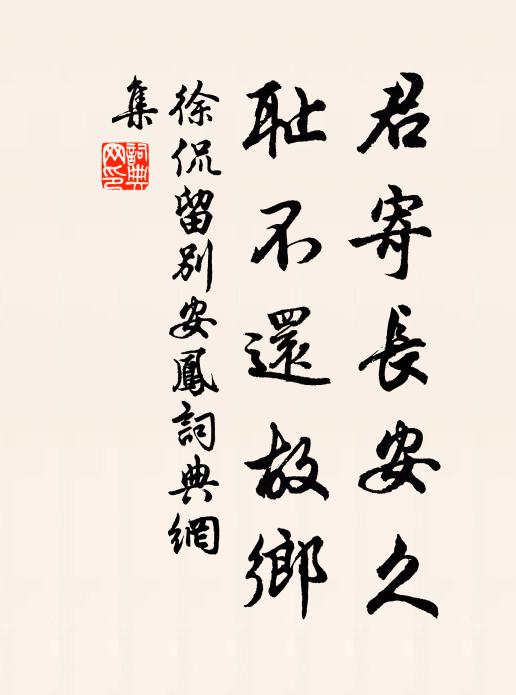 君寄長安久
耻不還故鄉
徐侃留別安鳳詞典網
集
詞典
网印